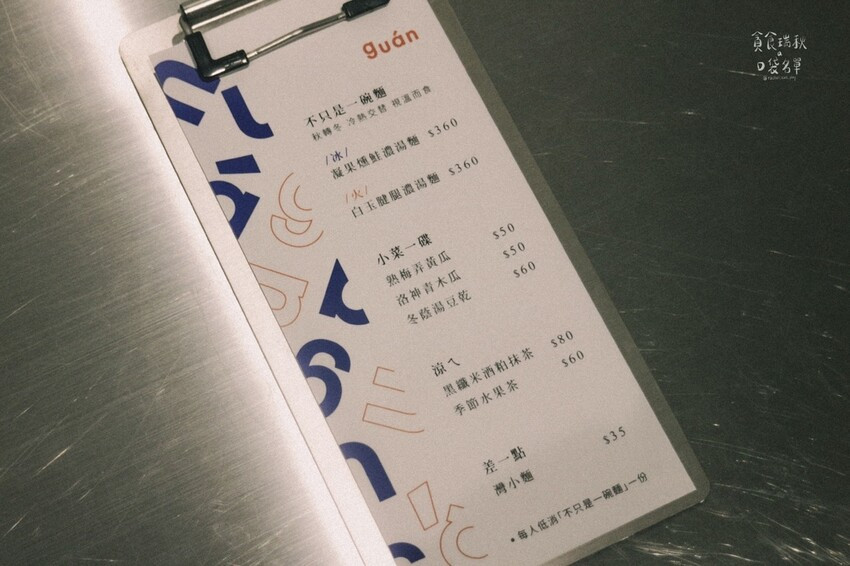 guán
貪食瑞秋
a
口袋名單
不只是一碗麵
秋轉冬 冷熱交替 視溫而食
/冰/
凝果燻鮭濃湯麵 $360
/火/
白玉腱腿濃湯麵 $360
小菜一碟
熟梅弄黃瓜 $50
洛神青木瓜 $50
冬蔭湯豆乾 $60
涼ㄟ
黑纖米酒粕抹茶 $80
季節水果茶 $60
差一點
灣小麵 $35
•每人低消「不只是一碗麵」一份